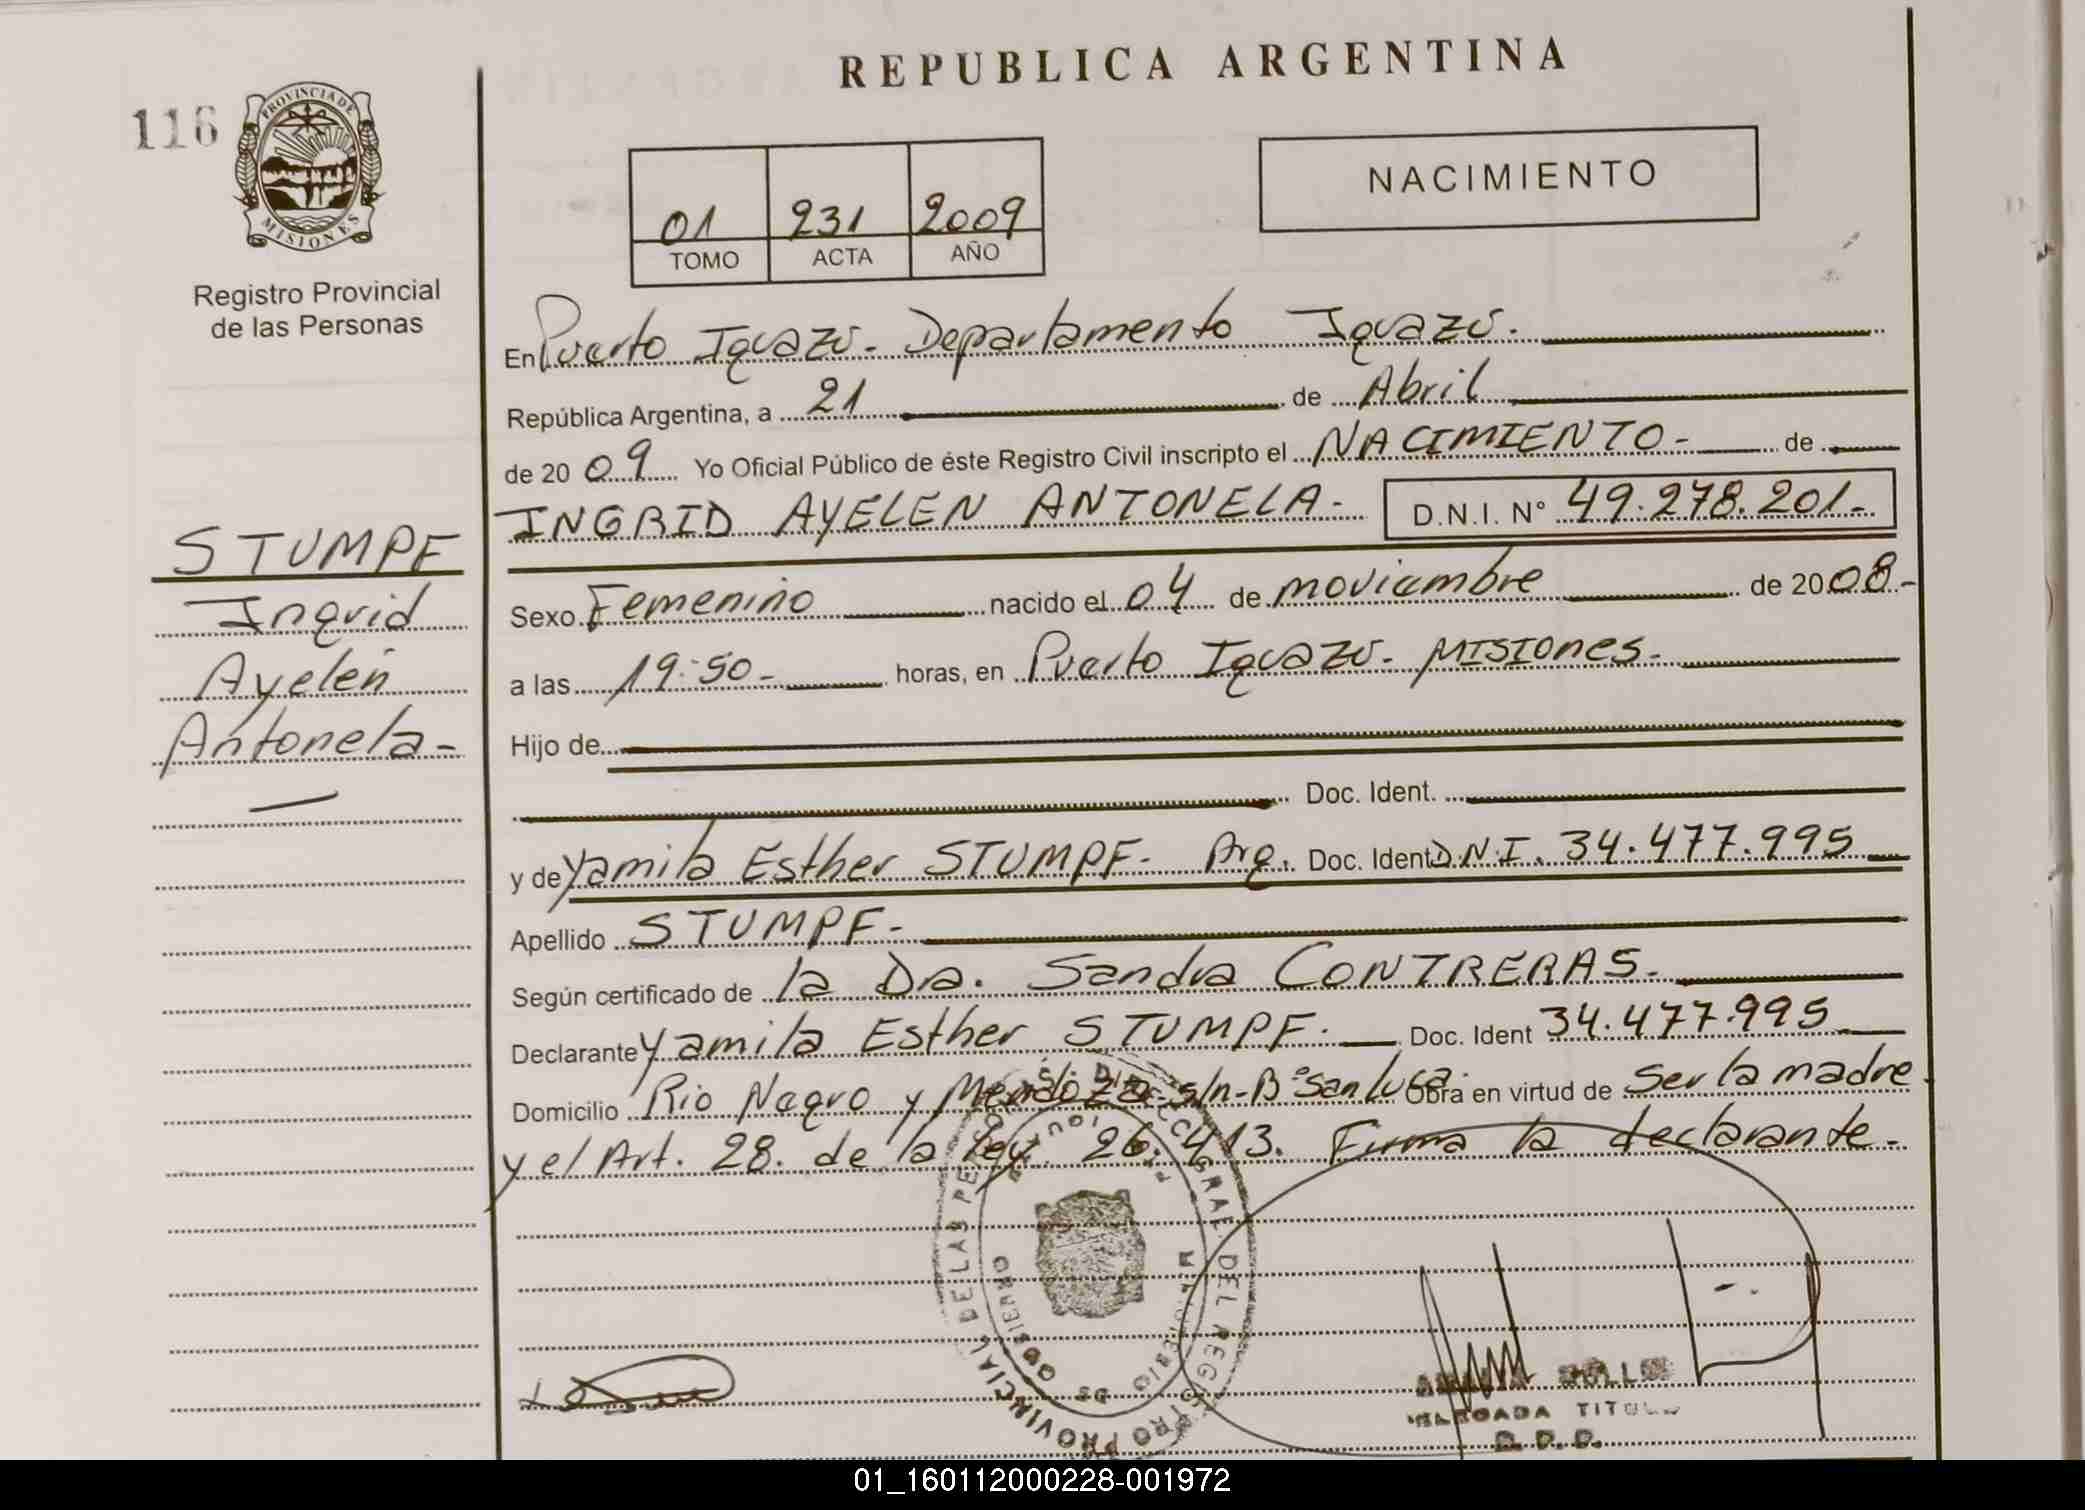 REPUBLICA ARGENTINA
116
PROVINCIA DE
MISIONES
Registro Provincial
de las Personas
NACIMIENTO
01 231 2009
TOMO ACTA AÑO
En Puerto Iguazú - Departamento Iguazú.
República Argentina, a 21 de Abril
de 2009 Yo Oficial Público de éste Registro Civil inscripto el NACIMIENTO - de
INGRID AYELEN ANTONELA - D.N.I. N° 49.278.201-
STUMPF
Ingrid
Ayelén
Antonela -
Sexo Femenino nacido el 04 de noviembre de 2008.-
a las 19:50 - horas, en Puerto Iguazú - MISIONES.
Hijo de
Doc. Ident.
y de Yamila Esther STUMPF - Arg. Doc. Ident D.N.I. 34.477.995
Apellido STUMPF -
Según certificado de la Dra. Sandra CONTRERAS -
Declarante Yamila Esther STUMPF. Doc. Ident 34.477.995
Domicilio Rio Negro y Mendoza s/n - B° San Lucas Obra en virtud de ser la madre
y el Art. 28. de la Ley 26.413. Firma la declarante -
TITUL
01_160112000228-001972